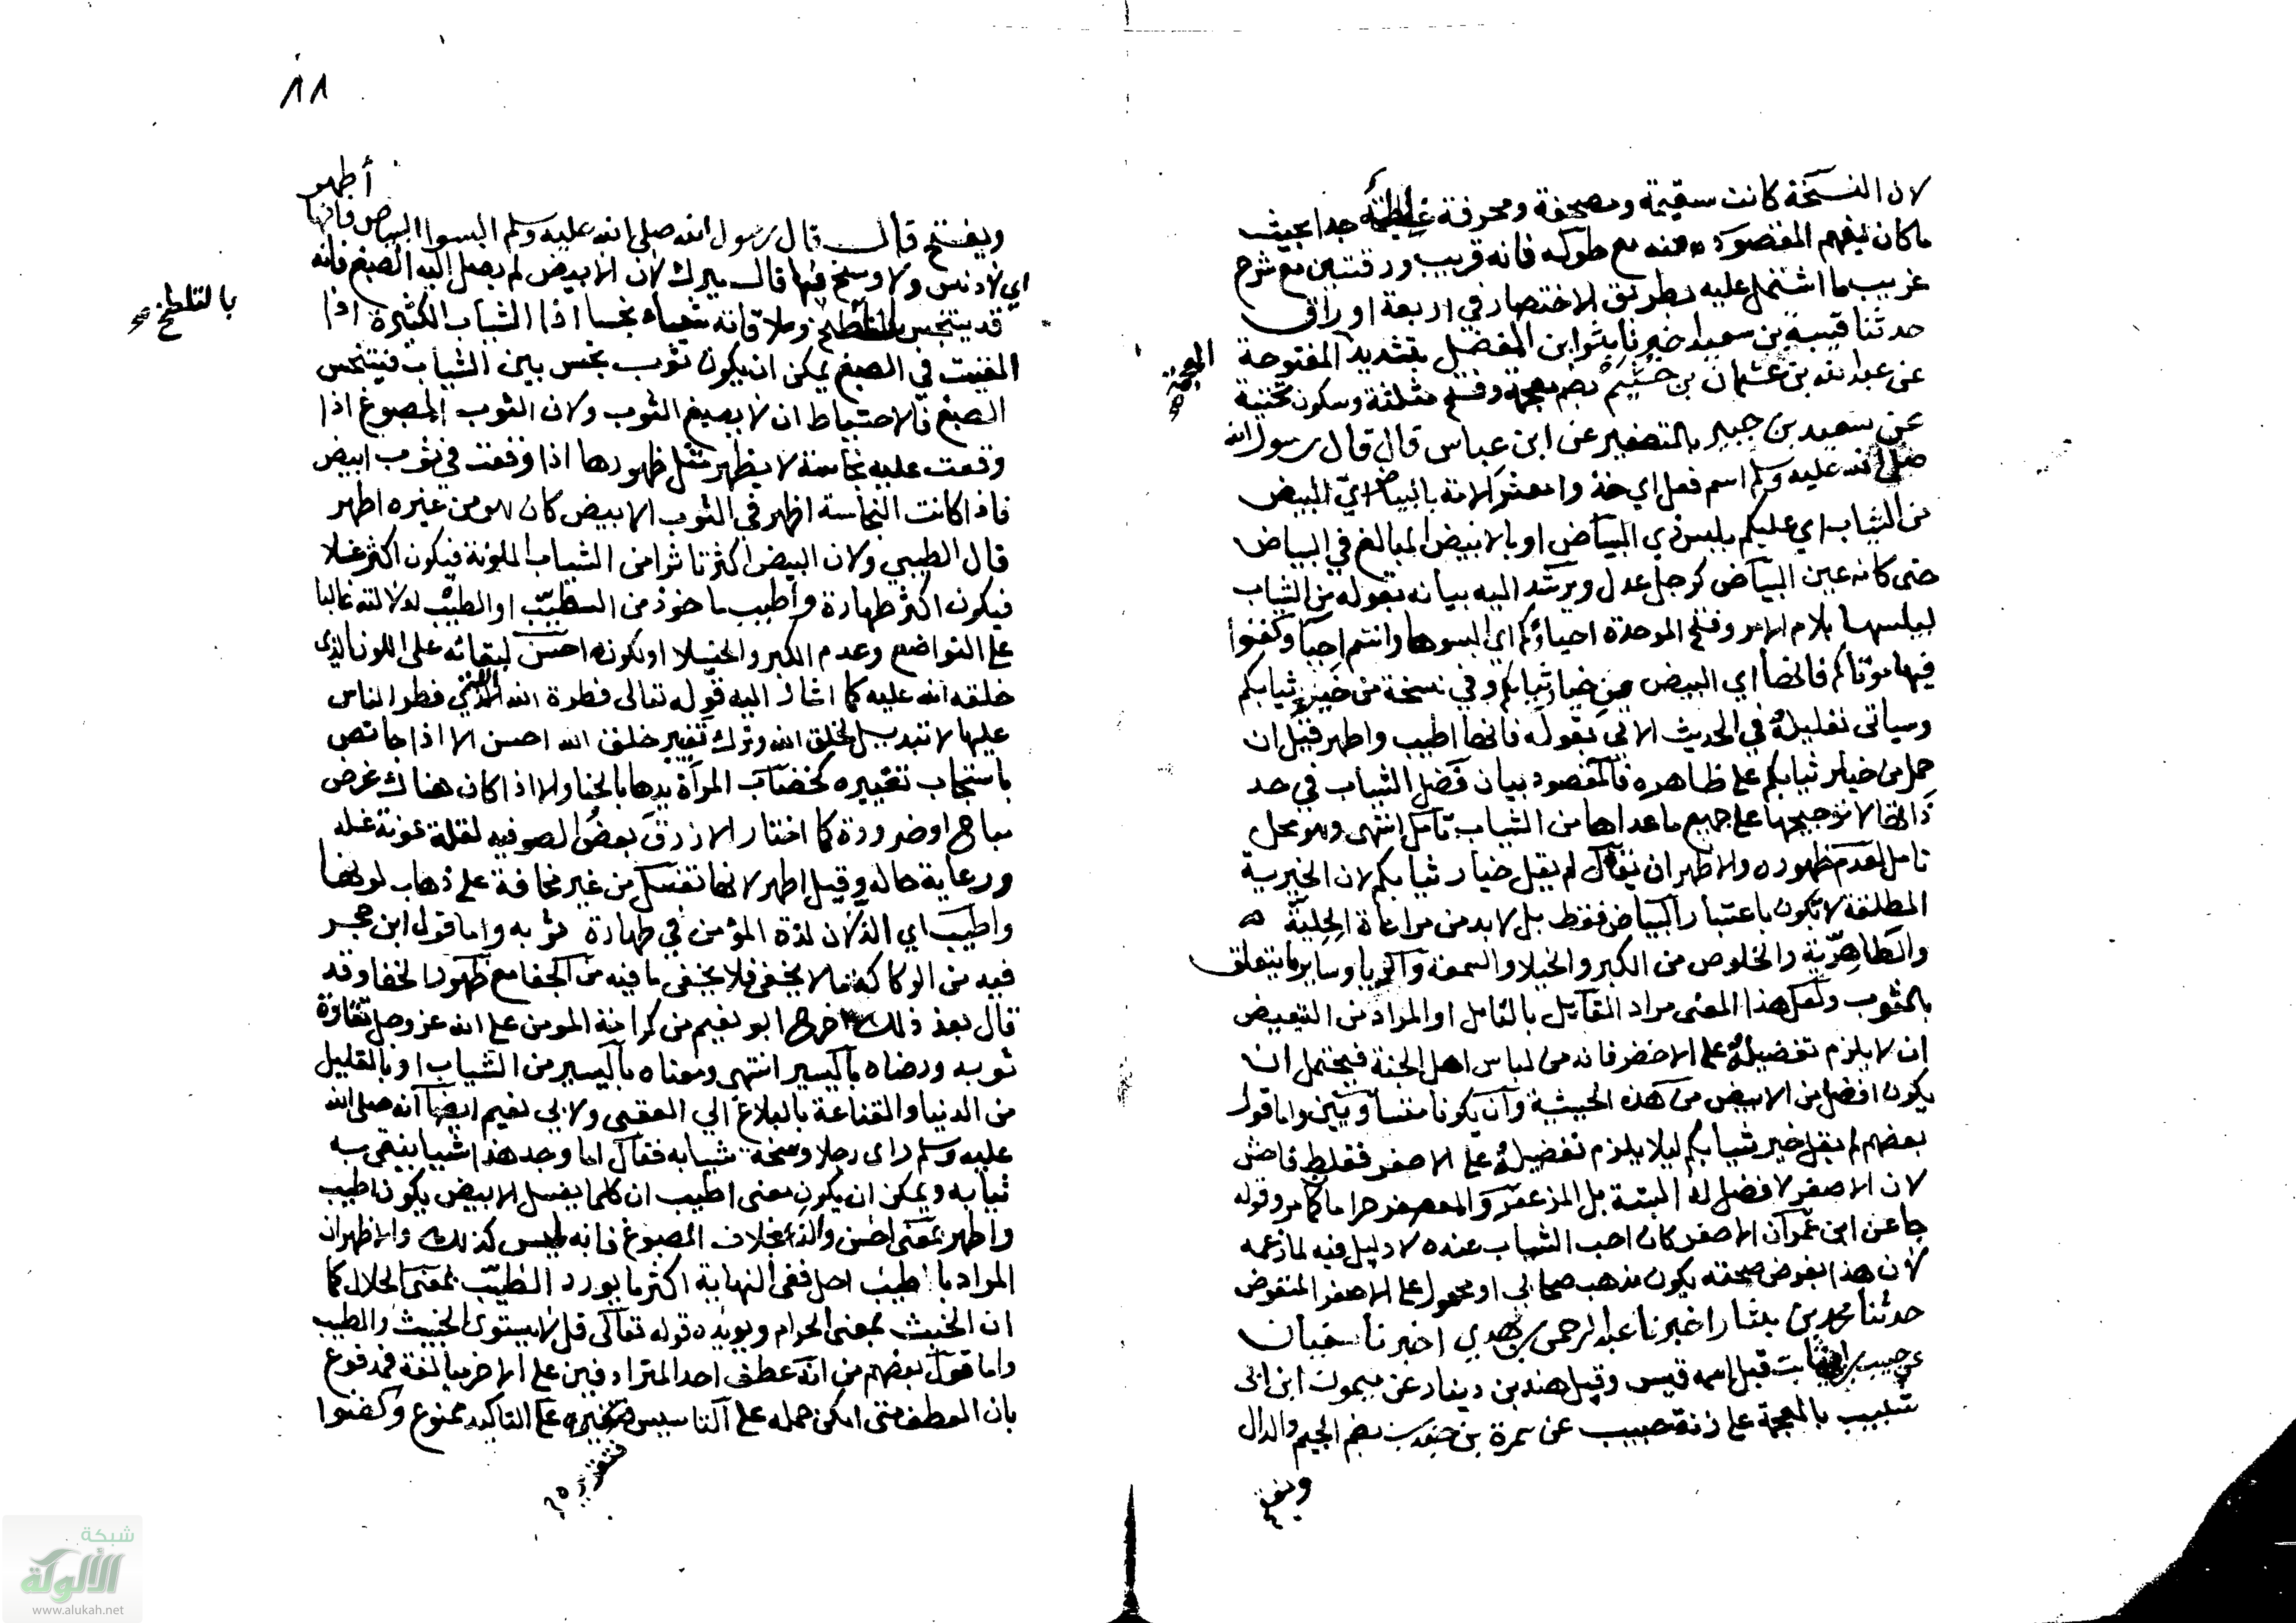 لان النسخة كانت سقيمة ومصحفة ومحرفة غليظة جدا بحيث
ما كان يفهم المقصود منه مع طوله فانه قريب ورقتين مع شرح
غريب ما اشتمل عليه بطريق الاختصار في اربعة اوراق
حدثنا قتيبة بن سعيد اخبرنا بشر ابن المفضل بتشديد المفتوحة
المعجمة
عن عبد الله بن عثمان بن خثيم بضم معجمة وفتح مثلثة وسكون تحتية
عن سعيد بن جبير بالتصغير عن ابن عباس قال قال رسول الله
صلى الله عليه وسلم اسم فعل اي خذوا معشر الامة بالبياض اي البيض
من الثياب اي عليكم بلبس ذي البياض او بالابيض المبالغ في البياض
حتى كانه عين البياض كرجل عدل ويرشد اليه بيانه بقوله من الثياب
ليلبسها بلام الامر وفتح الموحدة احياؤكم اي البسوها وانتم احيا وكفنوا
فيها موتاكم فانها اي البيض من خيار ثيابكم وفي نسخة من خير ثيابكم
وسياتي تعليله في الحديث الاتي بقوله فانها اطيب واطهر قيل ان
حمل من خيار ثيابكم على ظاهره فالمقصود بيان فضل الثياب في حد
ذاتها لا ترجيحها على جميع ما عداها من الثياب تامل انتهى وهو محل
تامل لعدم ظهوره والاظهر ان يقال لم يقل خيار ثيابكم لان الخيرية
المطلقة لا تكون باعتبار البياض فقط بل لا بد من مراعاة الحلية
والطاهرية والخلوص من الكبر والخيلا والسمعة والريا وساير ما يتعلق
بالثوب ولعل هذا المعنى مراد القايل بالتامل او المراد من التبعيض
ان لا يلزم تفضيله على الاخضر فانه من لباس اهل الجنة فيحتمل ان
يكون افضل من الابيض من هذه الحيثية وان يكونا متساويين واما قول
بعضهم لم يقل خير ثيابكم ليلا يلزم تفضيله على الاصفر فغلط فاحش
لان الاصفر لا فضل له البتة بل المزعفر والمعصفر حرام كما مر وقوله
جا عن ابن عمر ان الاصفر كان احب الثياب عنده لا دليل فيه لما زعمه
لان هذا بفرض صحته يكون مذهب صحابي او محمول على الاصفر المنقوض
حدثنا محمد بن بشار اخبرنا عبد الرحمن بن مهدي اخبرنا سفيان
عن حبيب بن ابي ثابت قيل اسمه قيس وقيل هند بن دينار عن ميمون ابن ابي
شبيب بالمعجمة على زنة حبيب عن سمرة بن جندب بضم الجيم والدال
ويفتح
٨٨
أطهر
ويفتح قال قال رسول الله صلى الله عليه وسلم البسوا البياض فانها
اي لا دنس ولا وسخ فيها قال ميرك لان الابيض لم يصل اليه الصبغ فانه
قد يتنجس وملاقاته شيأ نجسا اذا الثياب الكثيرة اذا
بالتلطخ صح
القيت في الصبغ يمكن ان يكون ثوب نجس بين الثياب فيتنجس
الصبغ فالاحتياط ان لا يصبغ الثوب ولان الثوب المصبوغ اذا
وقعت عليه نجاسة لا يظهر مثل ظهورها اذا وقعت في ثوب ابيض
فاذا كانت النجاسة اظهر في الثوب الابيض كان هو من غيره اطهر
قال الطيبي ولان البيض اكثر تاثرا من الثياب الملونة فيكون اكثر غسلا
فيكون اكثر طهارة وأطيب ماخوذ من الطيب او الطيب لدلالته غالبا
على التواضع وعدم الكبر والخيلا او لكونه احسن لبقائه على اللون الذي
خلقه الله عليه كما اشار اليه قوله تعالى فطرة الله التي فطر الناس
عليها لا تبديل لخلق الله وترك تغيير خلق الله احسن الا اذا جا نص
باستحباب تغييره كخضاب المرأة يدها بالحنا ولا اذا كان هناك غرض
مباح او ضرورة كما اختار الازرق بعض الصوفيه لقلة مؤنة غسله
ورعاية حاله وقيل اطهر لانها تغسل من غير مخافة على ذهاب لونها
واطيب اي الذ لان لذة المؤمن في طهارة ثوبه واما قول ابن حجر
فيه من الركاكة ما لا يخفى فلا يخفى ما فيه من الجفا مع ظهور الخفا وقد
قال بعد ذلك اخرج ابو نعيم من كرامة المومن على الله عز وجل نقاوة
ثوبه ورضاه باليسير انتهى ومعناه باليسير من الثياب او بالقليل
من الدنيا والقناعة بالبلاغ الي العقبى ولابي نعيم ايضا انه صلى الله
عليه وسلم راى رجلا وسخة ثيابه فقال اما وجد هذا شيا ينقى به
ثيابه ويمكن ان يكون معنى اطيب ان كلما يغسل الابيض يكون اطيب
واطهر بمعنى احسن والذ بخلاف المصبوغ فانه ليس كذلك والاظهر ان
المراد باطيب احل ففي النهاية اكثر ما يورد الطيب بمعنى الحلال كما
ان الخبيث بمعنى الحرام ويويده قوله تعالى قل لا يستوي الخبيث والطيب
واما قول بعضهم من انه عطف احد المترادفين على الاخر مبالغة فمدفوع
بان العطف متى امكن حمله على التاسيس على التاكيد ممنوع وكفنوا
شبكة
الألوكة
www.alukah.net